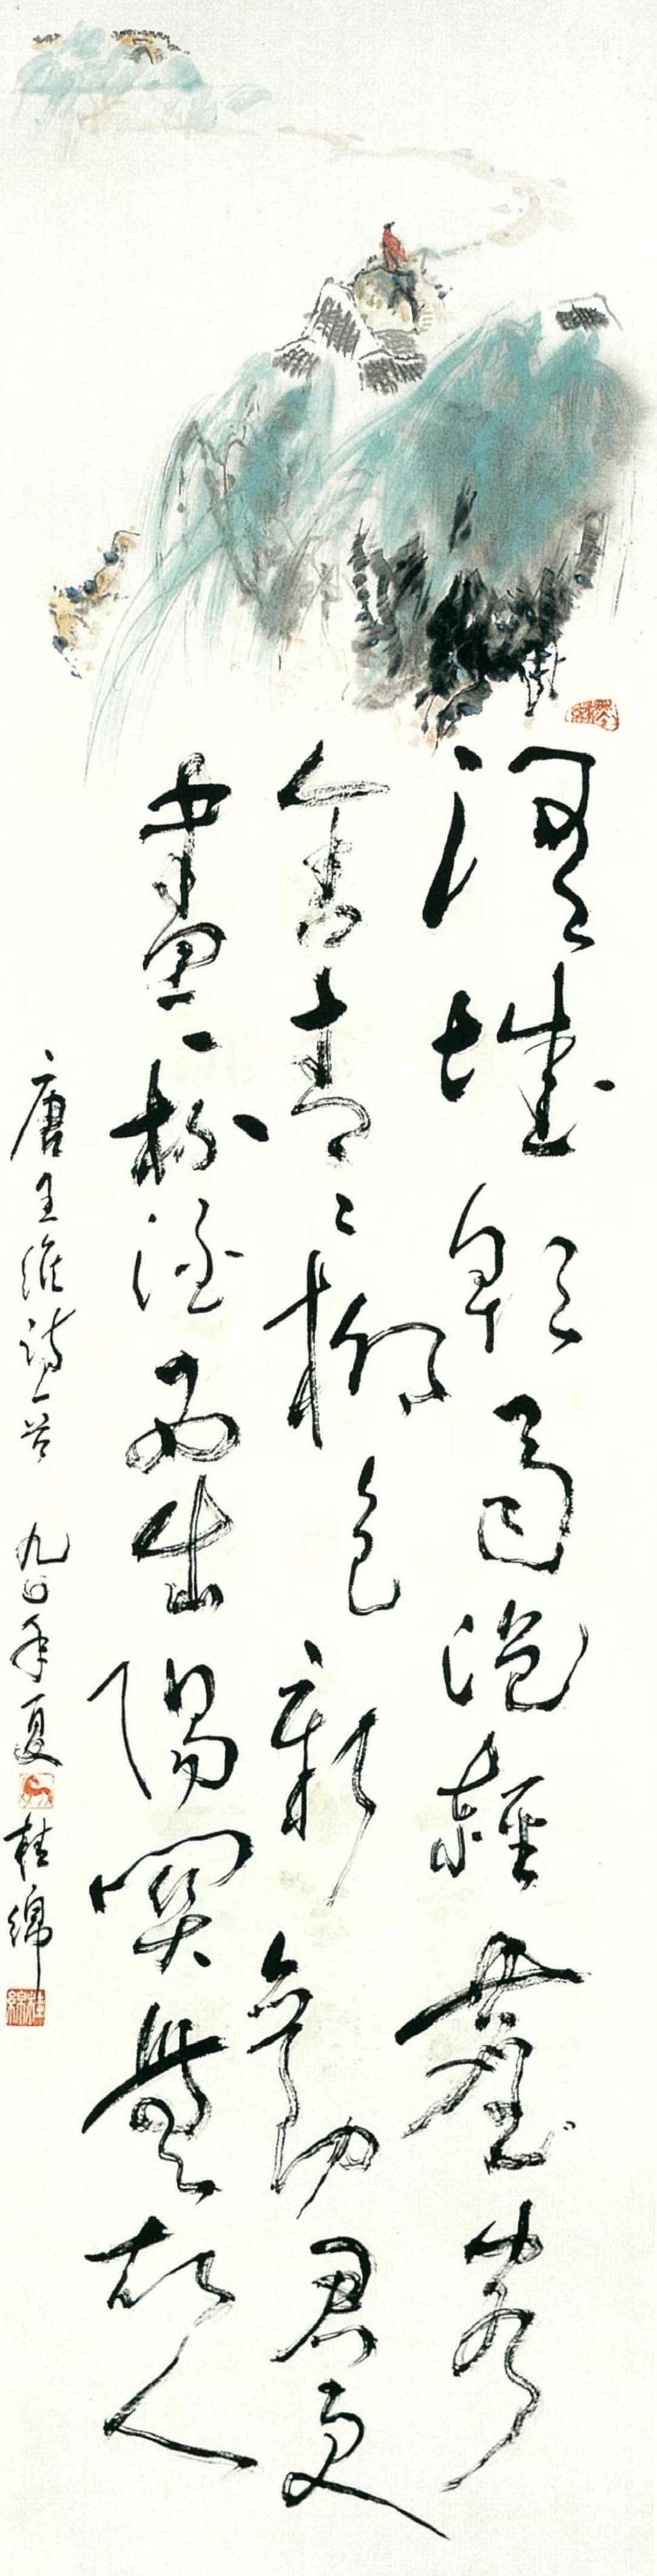 渭城朝雨浥轻尘客
舍青青柳色新劝君更
尽一杯酒西出阳关无故人
唐王维诗一首 九〇年夏 桂绵
桂绵